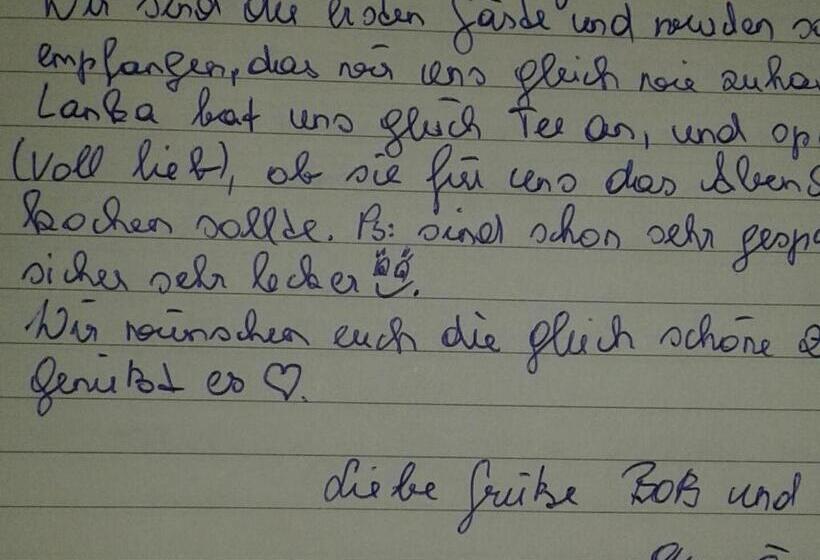 Wir sind die ersten Gäste und wurden so
empfangen, das wir uns gleich wie zuha
Lanka bat uns gleich Tee an, und op
(voll lieb), ob sie für uns das Abend
kochen sollte. Ps: sind schon sehr gespa
sicher sehr lecker
Wir wünschen euch die gleich schöne
Genüßt es ♡.
Liebe Grüße Bob und